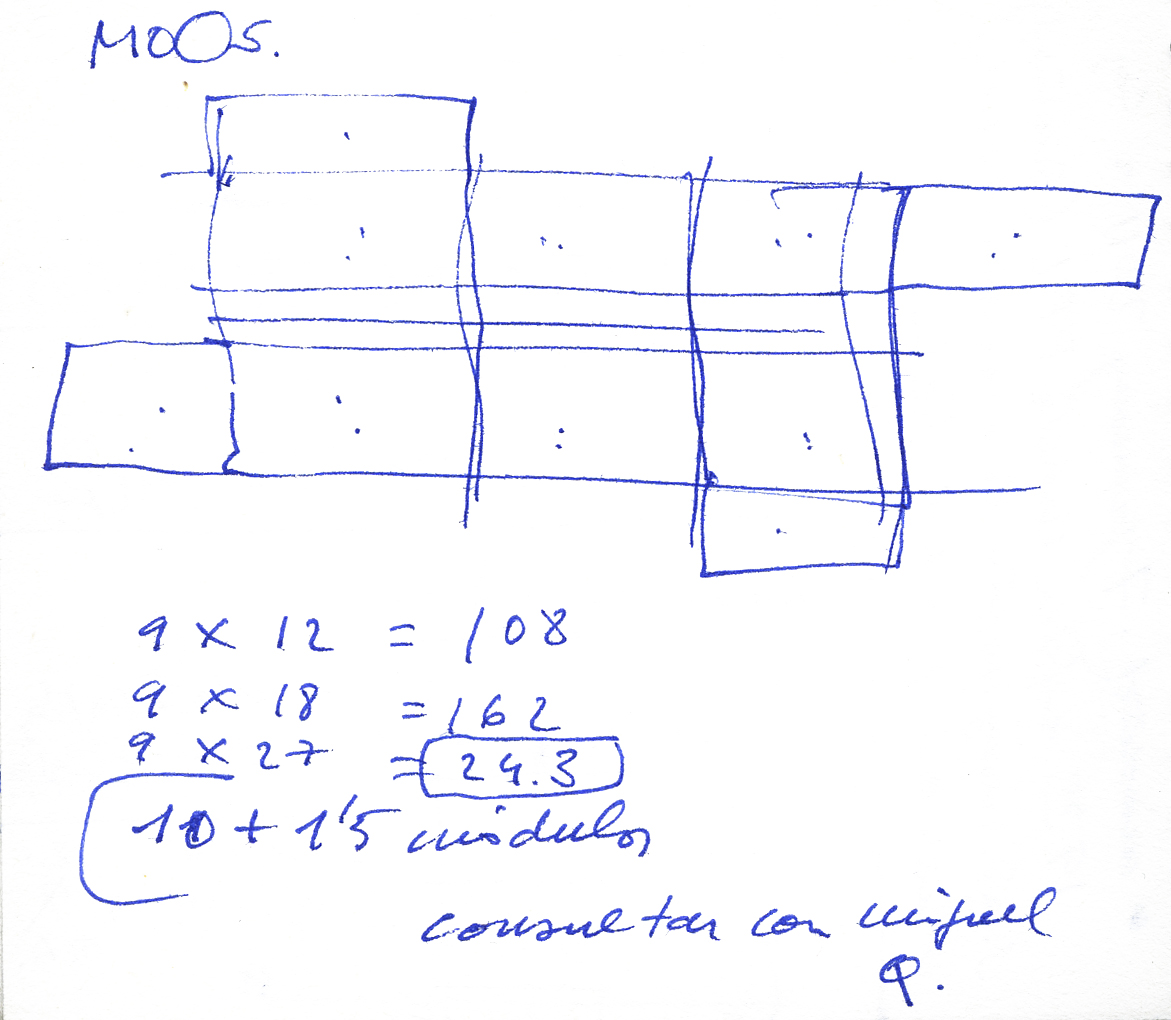 MOO5.
9 x 12 = 108
9 x 18 = 162
9 x 27 = 24.3
10 + 1'5 módulos
consultar con miguel
Q.